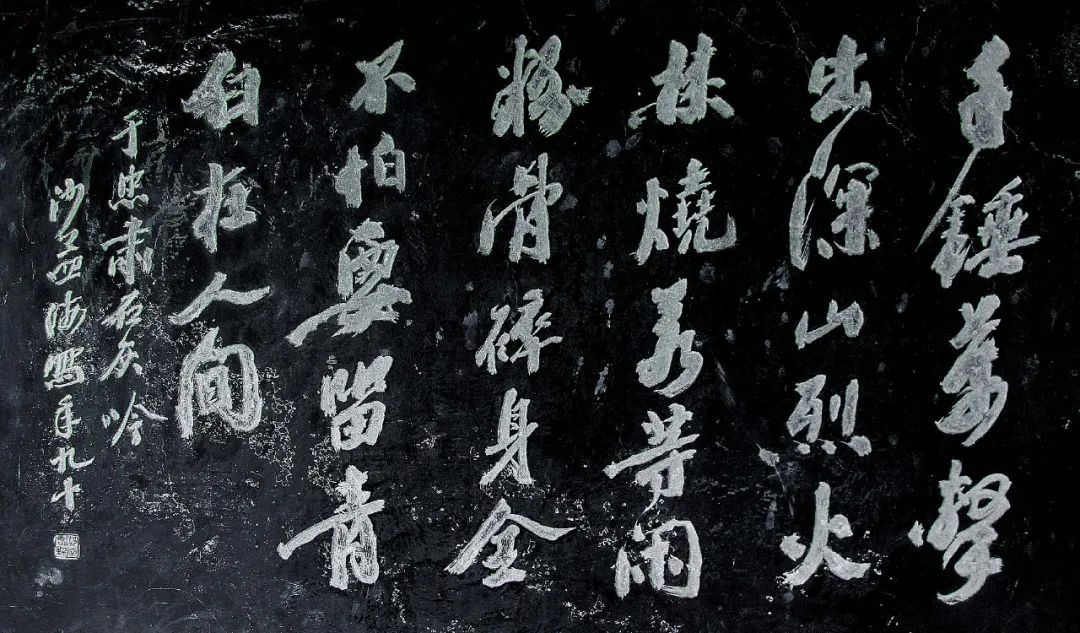 千錘萬擊
出深山烈火
焚燒若等閑
粉骨碎身全
不怕要留青
白在人間
于忠肅石灰吟
沙孟海寫年九十